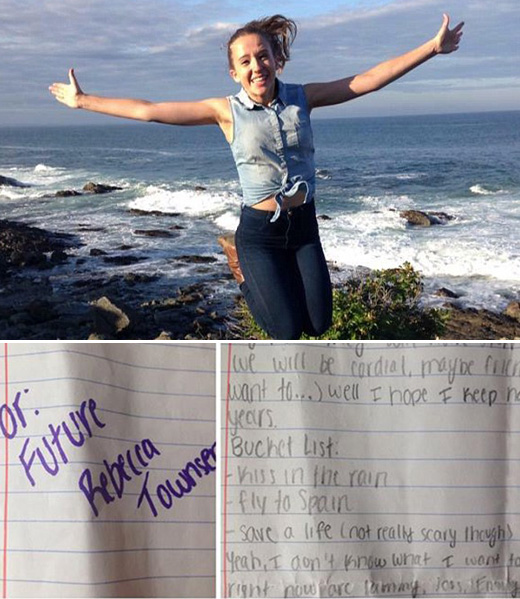 or:
Future
Rebecca
Townsen
we will be cordial, maybe frien
want to...) well I hope I keep
years.
Bucket List:
- kiss in the rain
- fly to Spain
- save a life (not really scary though)
Yeah, I don't know what I want to
right now are